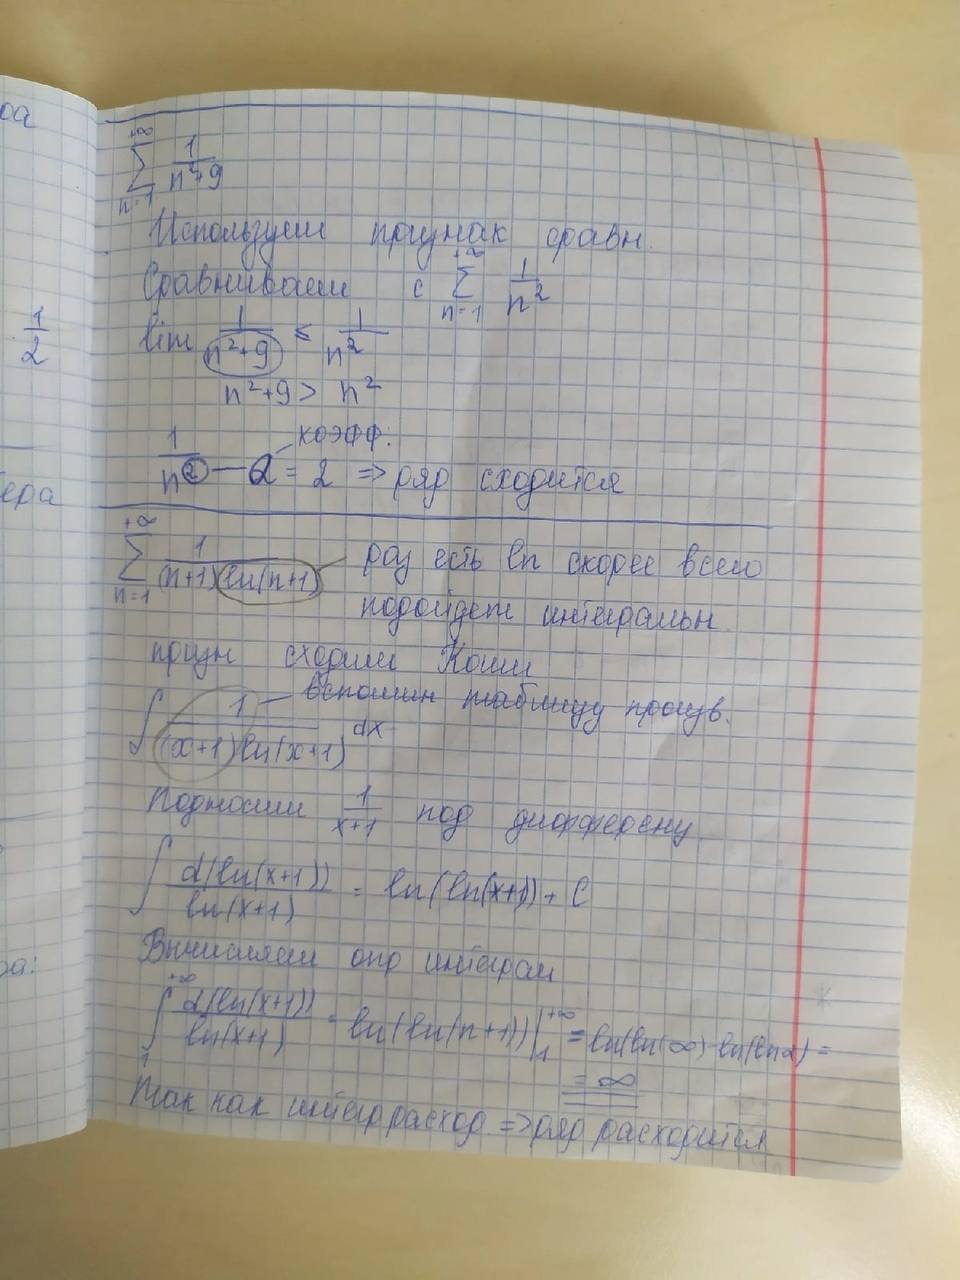 ра
1/2
ера
ра:
+∞
∑ 1/(n²+9)
n=1
Используем признак сравн.
Сравниваем с ∑ 1/n² (n=1, +∞)
lim 1/(n²+9) ≤ 1/n²
n²+9 > n²
коэфф.
1/n² — α = 2 => ряд сходится
+∞
∑ 1/((n+1)ln(n+1)) раз есть ln скорее всего
n=1
подойдет интегральн.
призн сходим Коши
вспомин таблицу произв.
∫ 1/((x+1)ln(x+1)) dx
Подносим 1/(x+1) под дифференц.
∫ d(ln(x+1))/ln(x+1) = ln(ln(x+1)) + C
Вычисляем опр интеграл
+∞
∫ d(ln(x+1))/ln(x+1) = ln(ln(n+1))|₁^+∞ = ln(ln(∞)-ln(ln2) =
1
= ∞
Так как интегр расход => ряд расходится